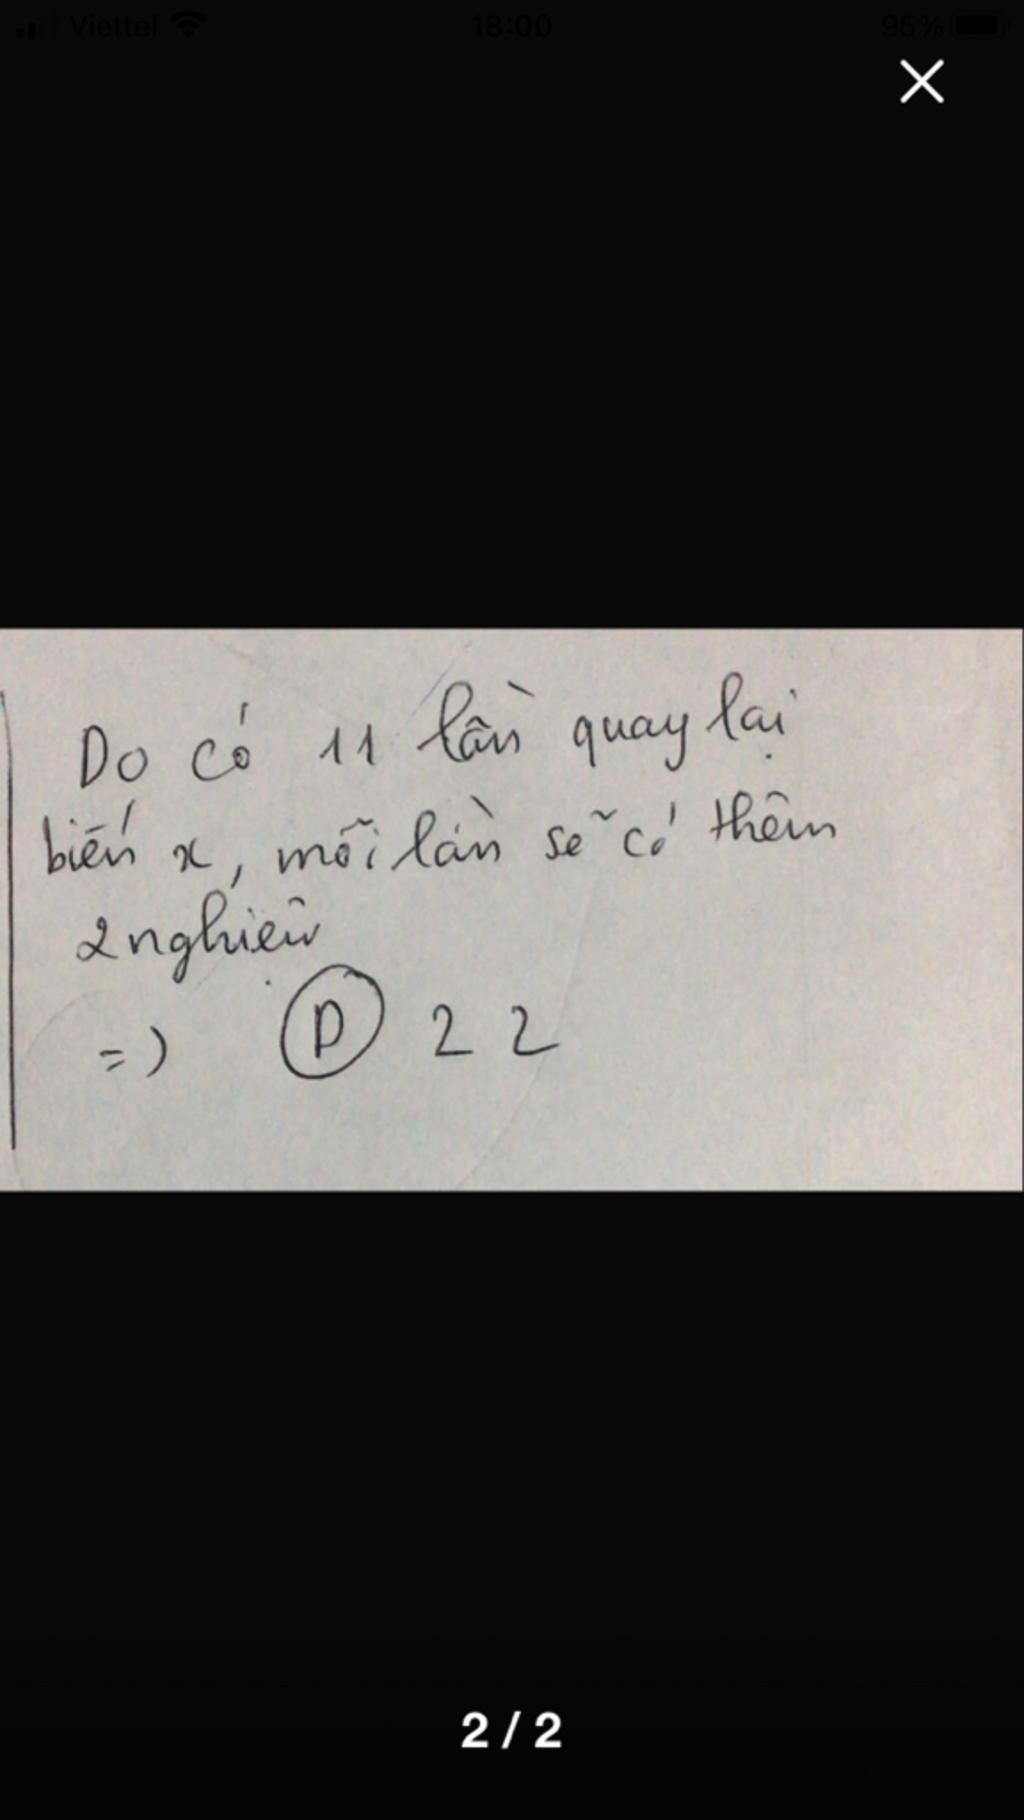 Viettel 18:00 95%
Do có 11 lần quay lại
biến x, mỗi lần sẽ có thêm
2 nghiệm
=) D 22
2 / 2